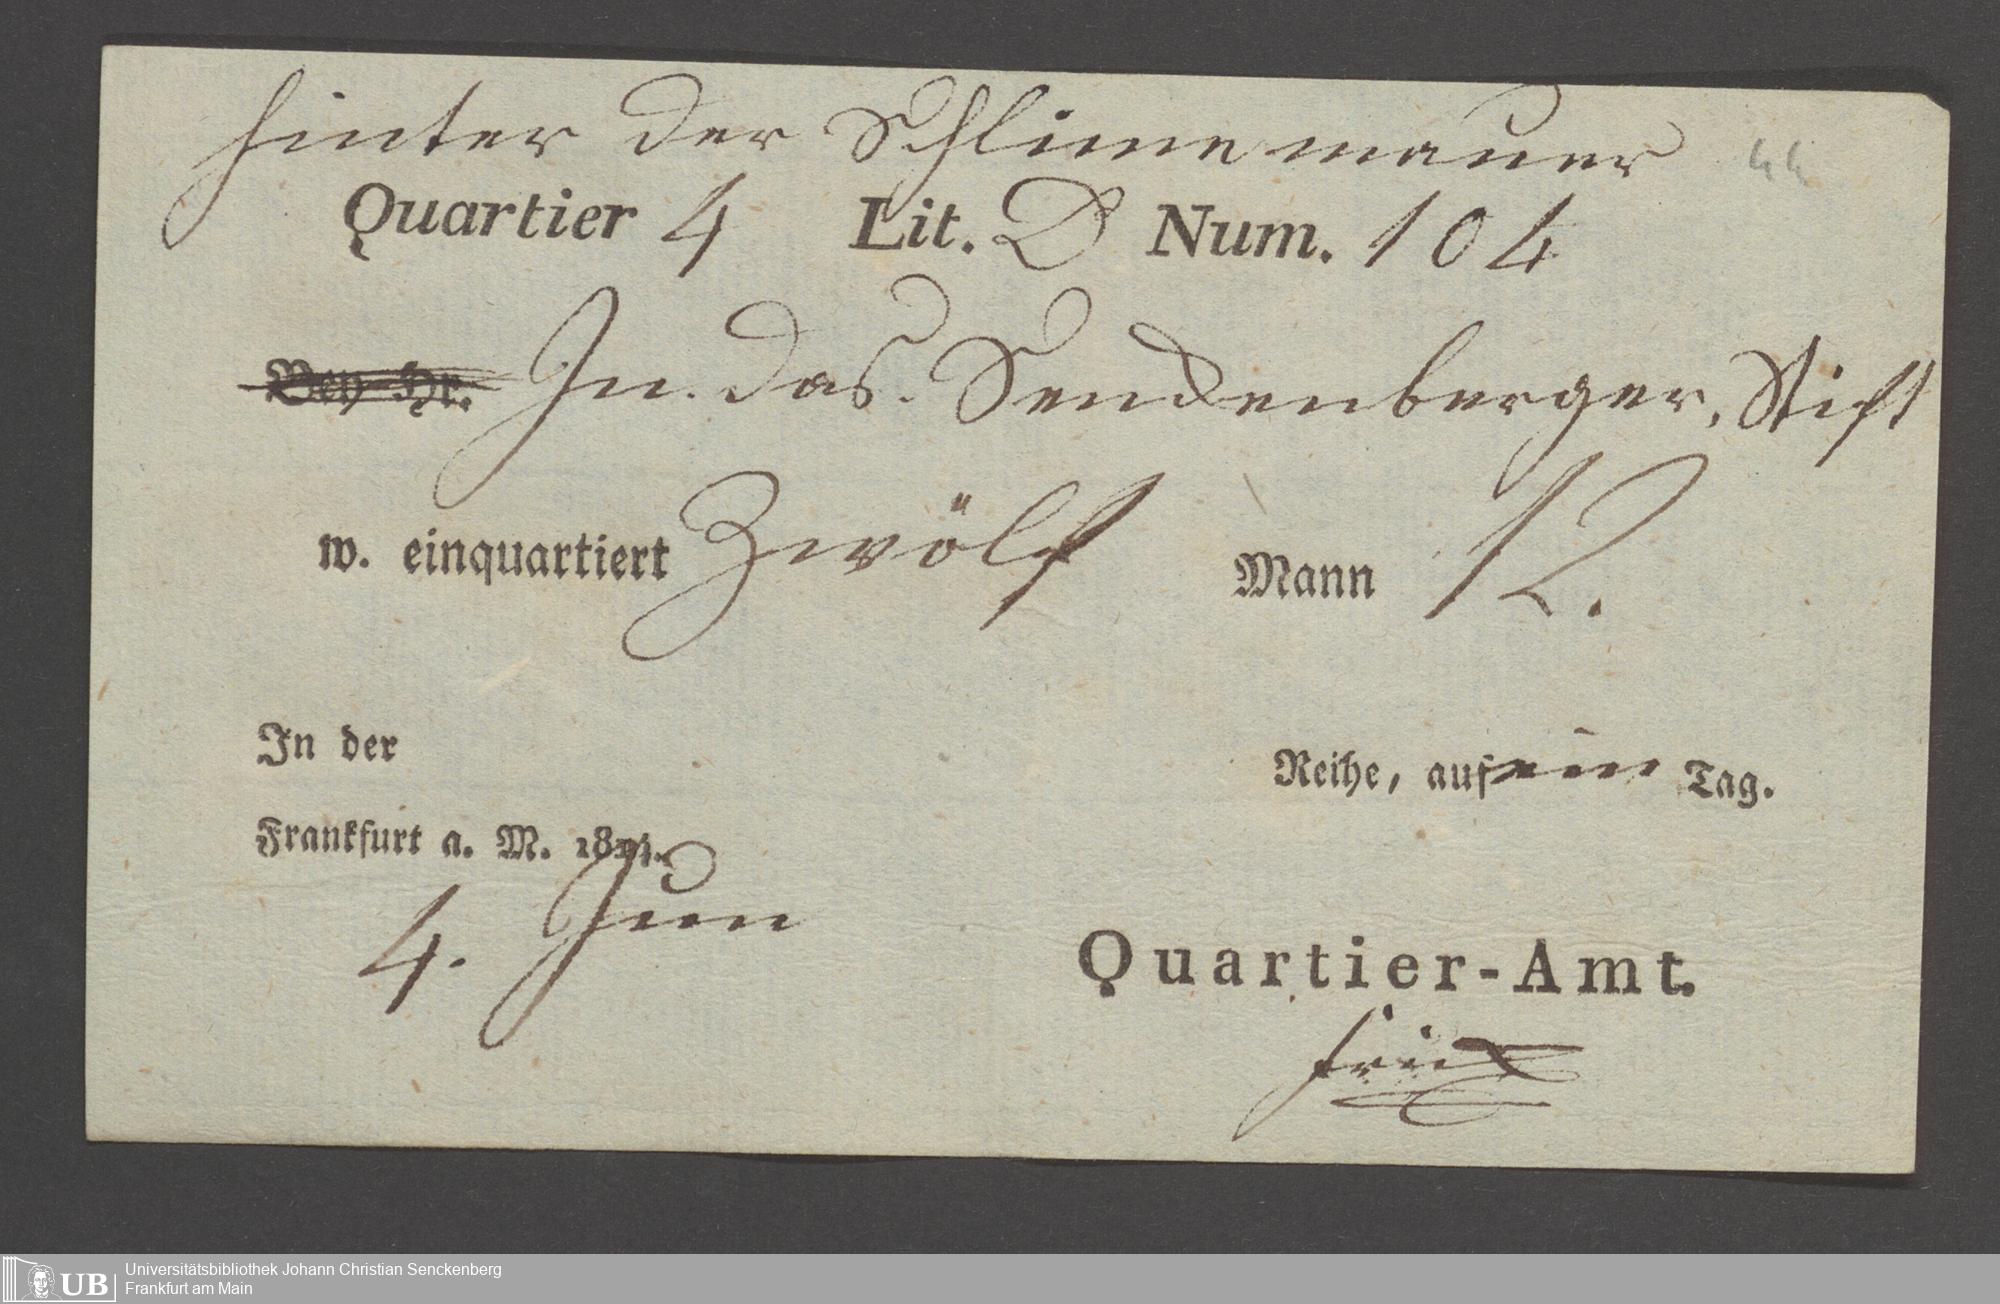 hinter der Schlimmemauer 44
Quartier 4 Lit. D Num. 104
Bey Hr. In das Sendenberger, Stift
w. einquartiert Zwölf Mann 12.
In der Reihe, auf ein Tag.
Frankfurt a. M.
4. Jun
Quartier-Amt.
UB Universitätsbibliothek Johann Christian Senckenberg
Frankfurt am Main